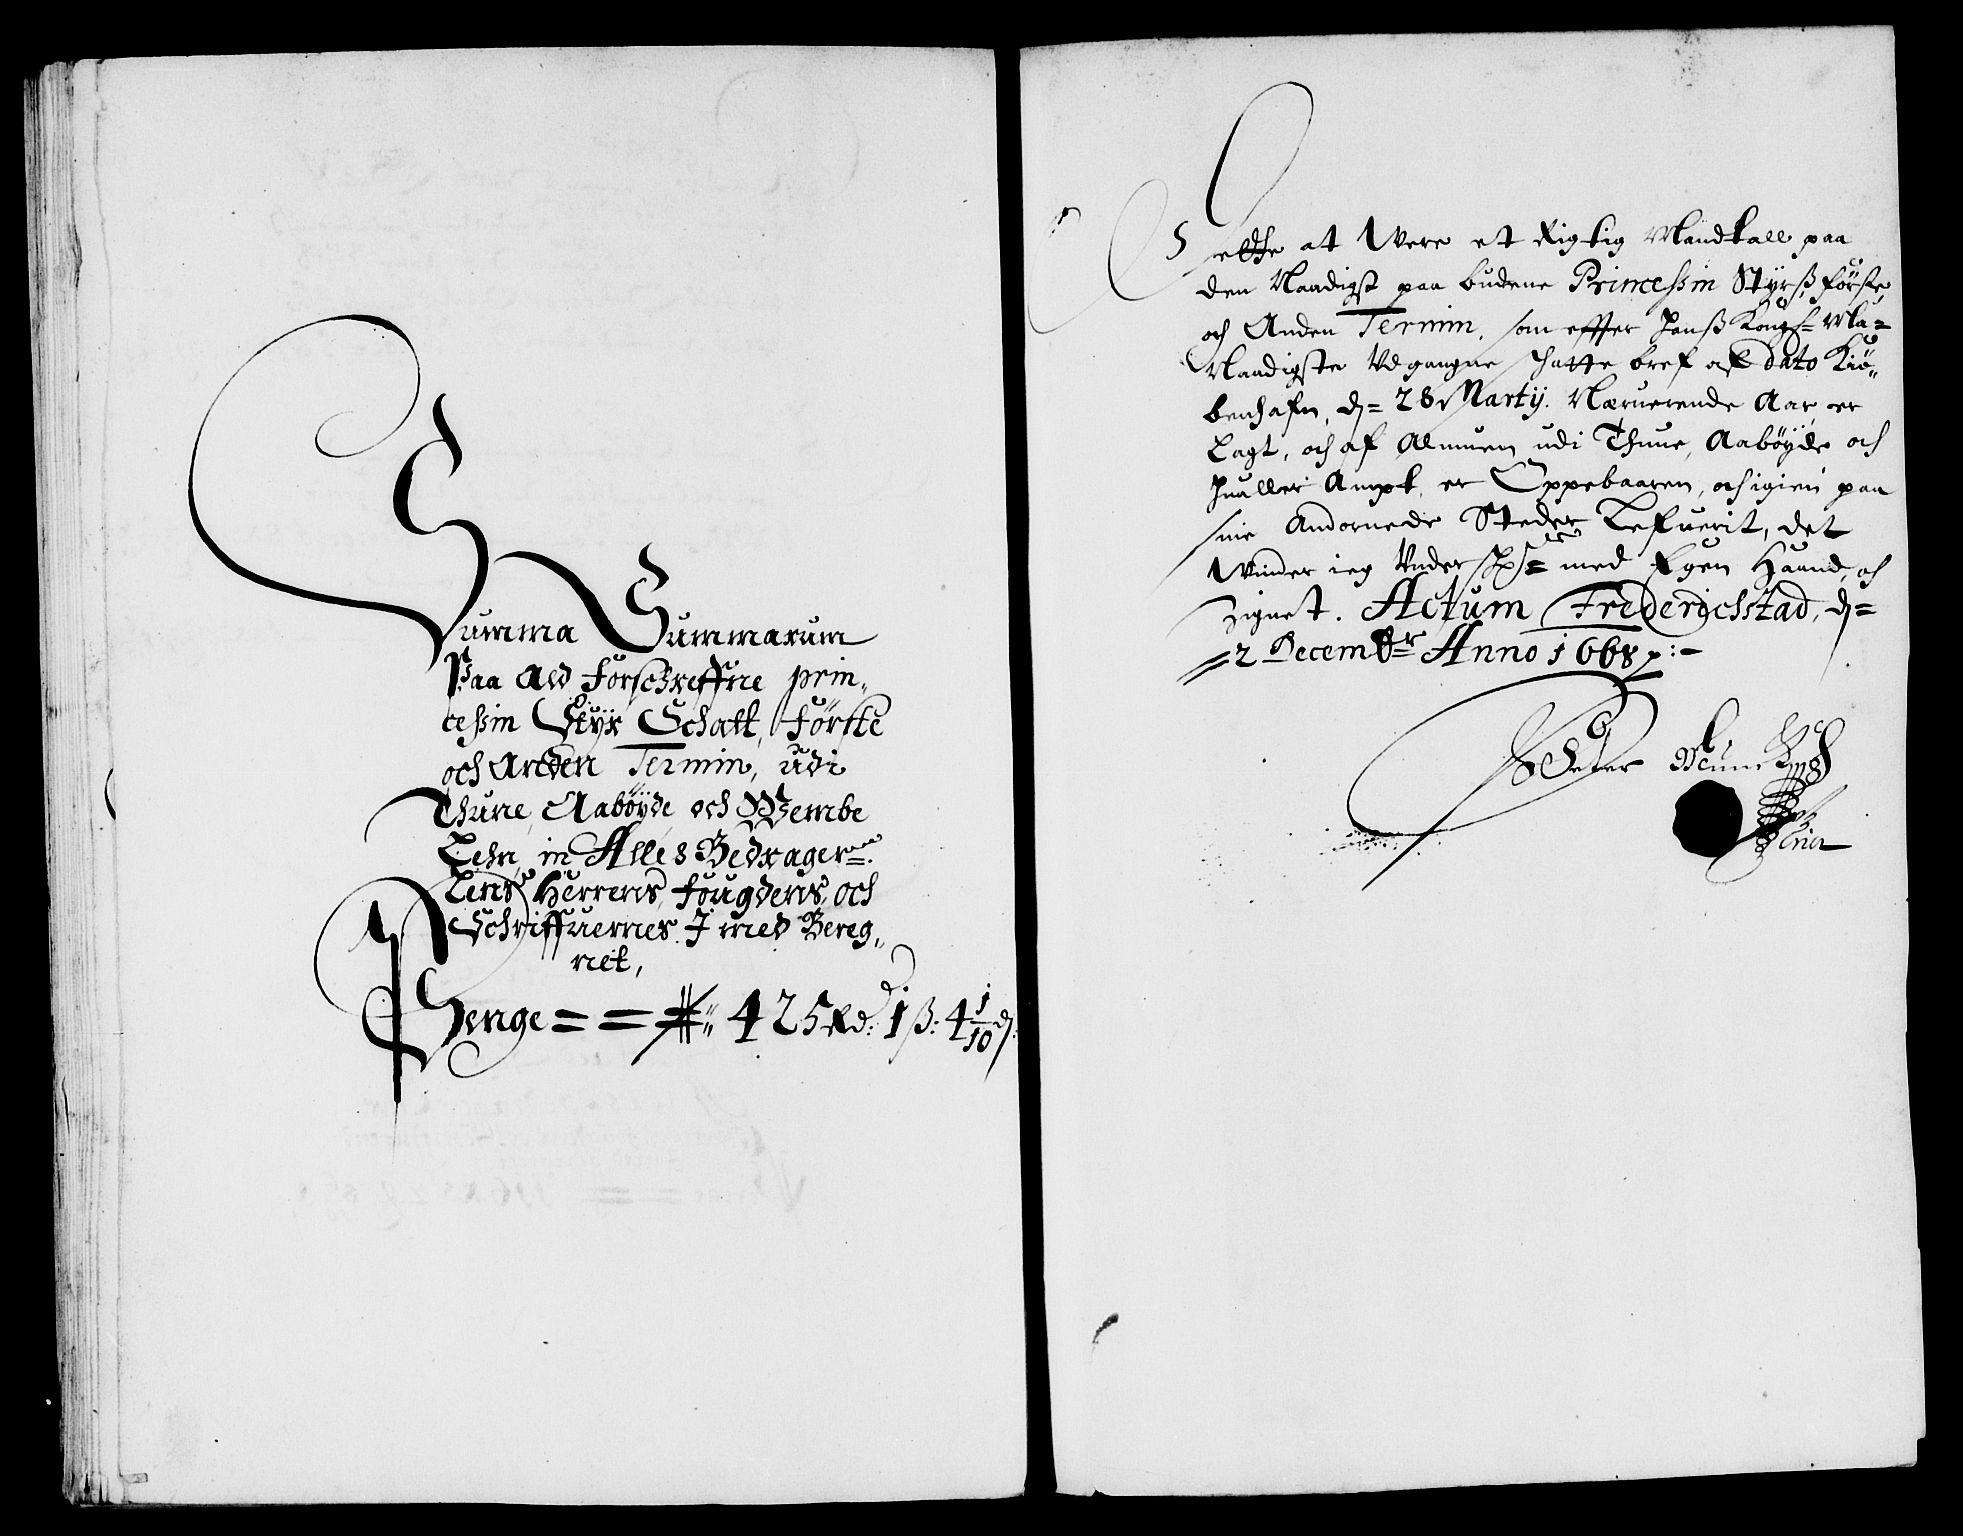 Summa Summarum
Paa Ald forschreffne prin„
cessin Styr Schatt, förste
och Anden Termin, udi
Thune, Aaböyde och Wembe
Lehn, in Alles Bedrager
Lens Herrens, fougdens, och
Schriffuernes Jmed Bereg„
net,
Penge = = 425 Rd: 1 ß: 4 1/10 d:
Dette at Were et Rigtig Mandtall paa
den Naadigst paa budene Princessin Styrß, förste
och Anden Termin, som effter Hanß Kongl= Ma=
Naadigste Udgangne schatte bref af dato Kiö„
benhafn, d= 28 Martij. Nærverende Aar er
Lagt, och af Almuen udi Thune, Aaböyde och
Huallør Ampt, er Oppebaaren, och igien paa
sine Andornede Steder Lefuerit, det
Winder ieg Under med Egen Haand, och
Zignet. Actum Friderichstad, d=
2 Decembr Anno 1668 p:-
Peter